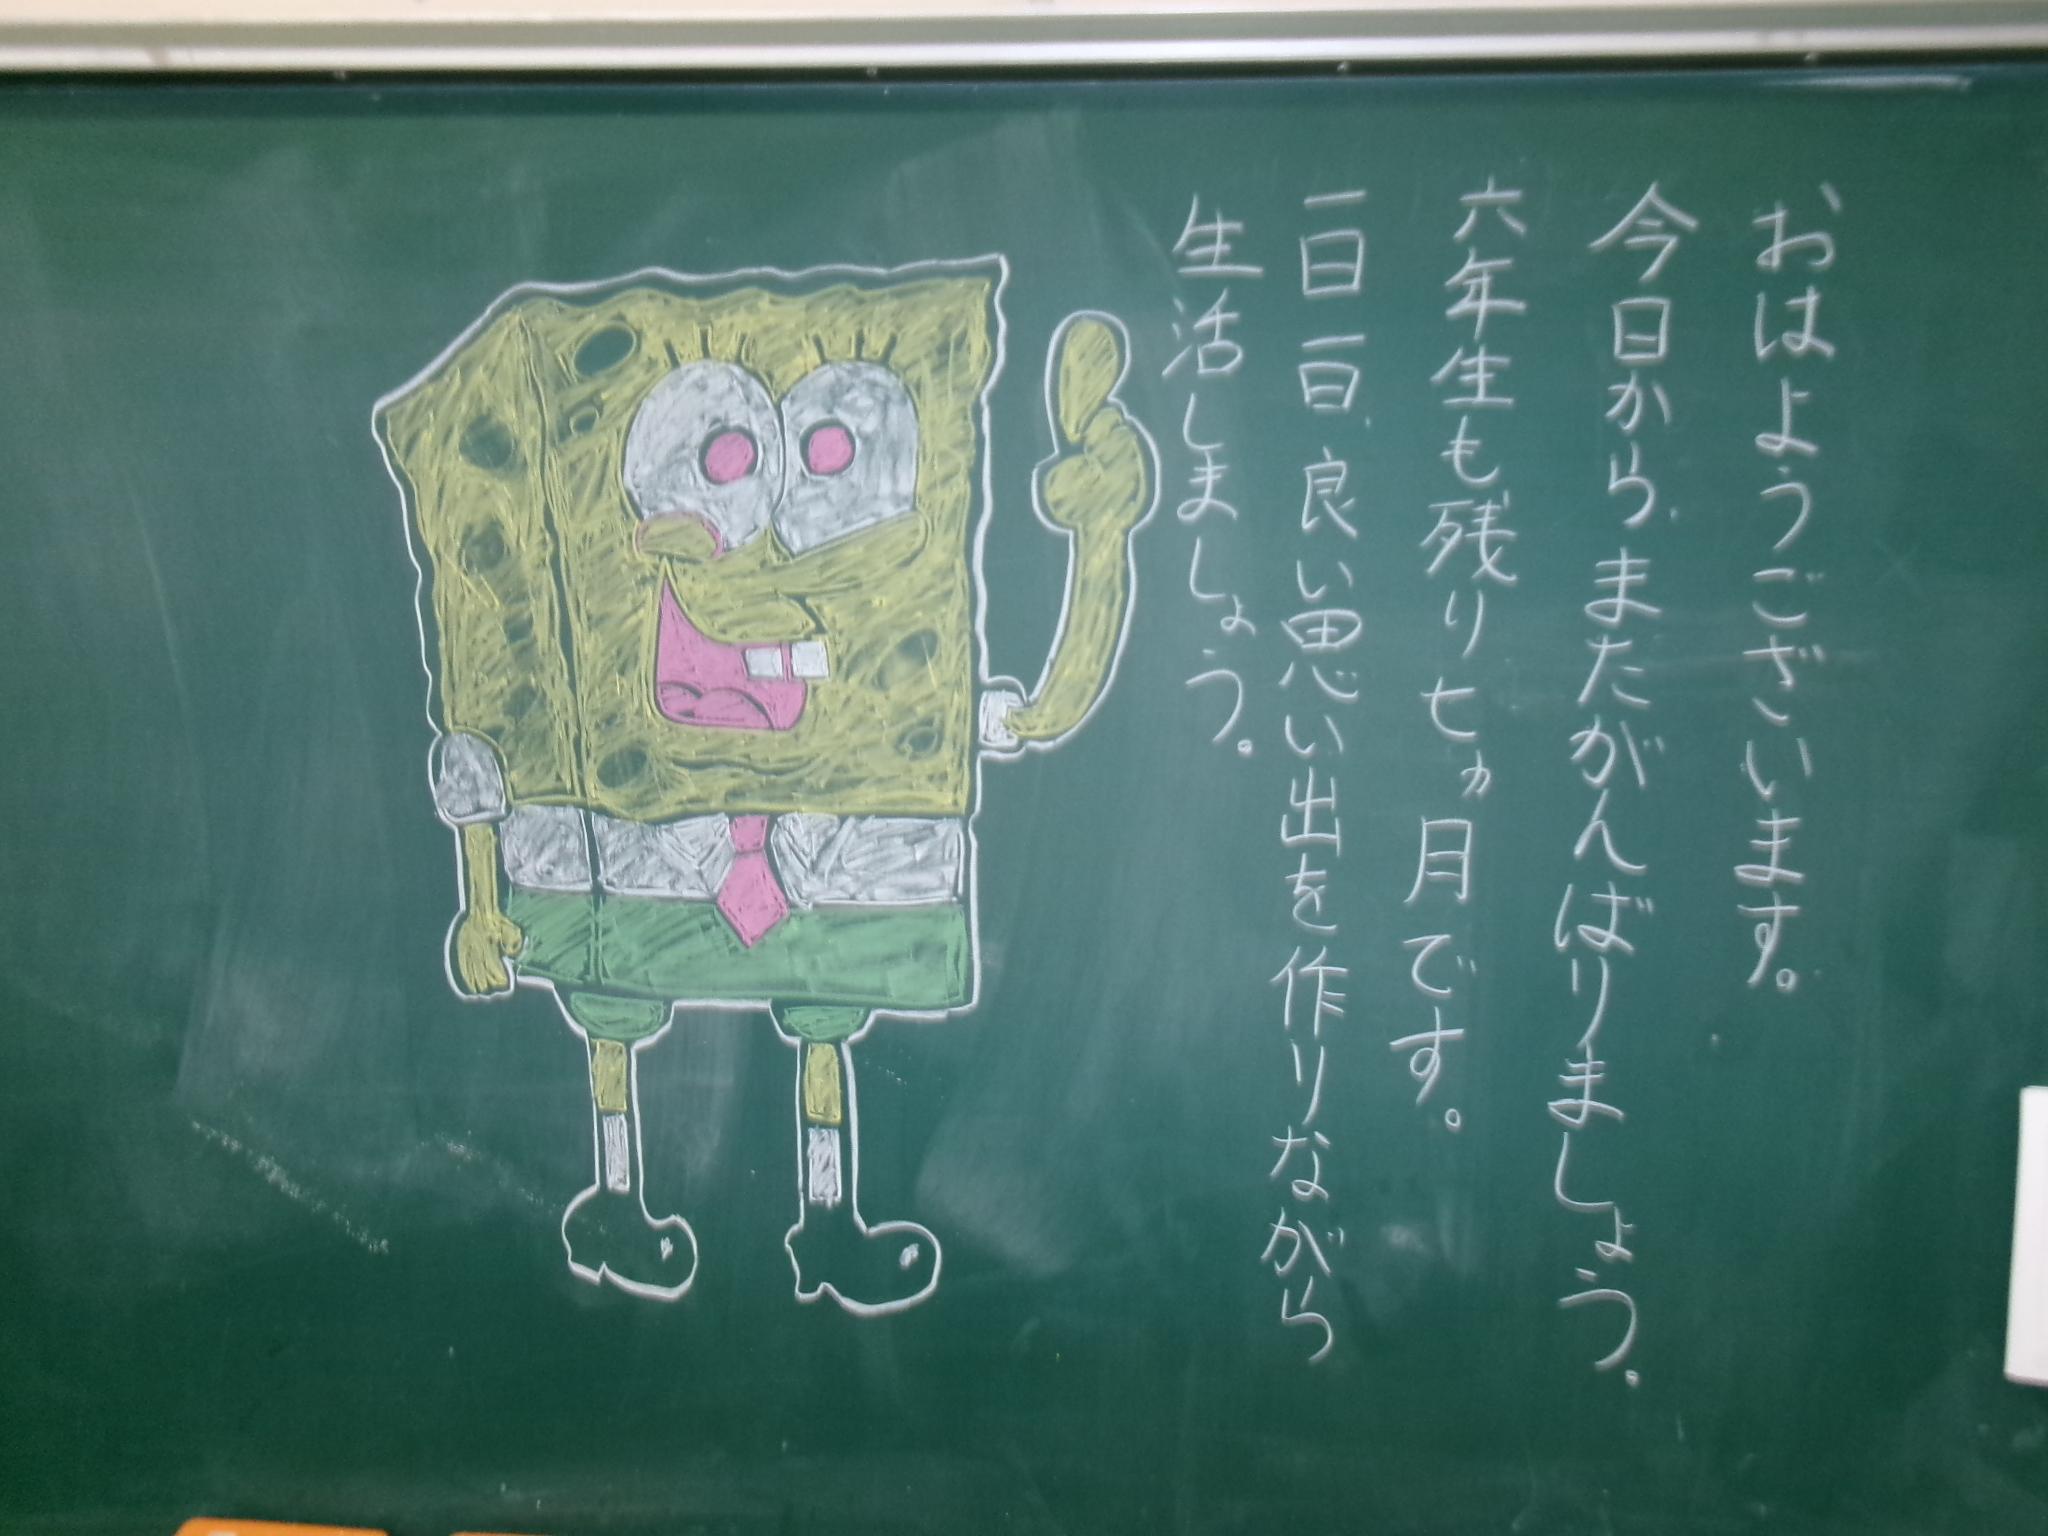 おはようございます。
今日から、またがんばりましょう。
六年生も残り七ヵ月です。
一日一日、良い思い出を作りながら
生活しましょう。